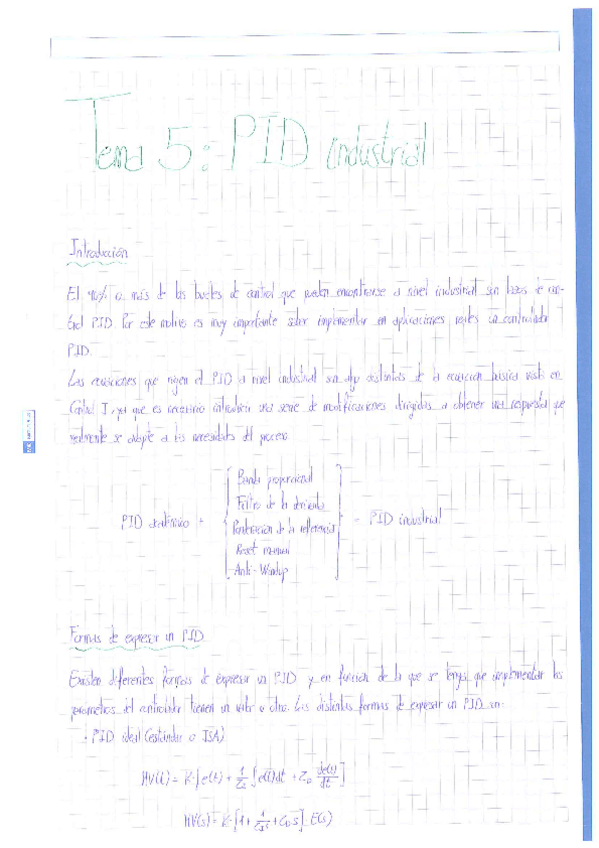 Tema 5: PID industrial
Introducción
El 90% o más de los bucles de control que pueden encontrarse a nivel industrial son lazos de con-
trol PID. Por este motivo es muy importante saber implementar en aplicaciones reales un controlador
PID.
Las ecuaciones que rigen el PID a nivel industrial son algo distintas de la ecuación básica vista en
Control I, ya que es necesario introducir una serie de modificaciones dirigidas a obtener una respuesta que
realmente se adapte a las necesidades del proceso.
Banda proporcional
Filtro de la derivada
PID académico + Ponderación de la referencia = PID industrial
Reset manual
Anti-Windup
Formas de expresar un PID
Existen diferentes formas de expresar un PID y en función de la que se tenga que implementar los
parámetros del controlador tienen un valor u otro. Las distintas formas de expresar un PID son:
· PID ideal (estándar o ISA)
MV(t) = K·[e(t) + 1/τi ∫e(t)dt + τD de(t)/dt]
MV(s) = K·[1 + 1/τi s + τD s]·E(s)